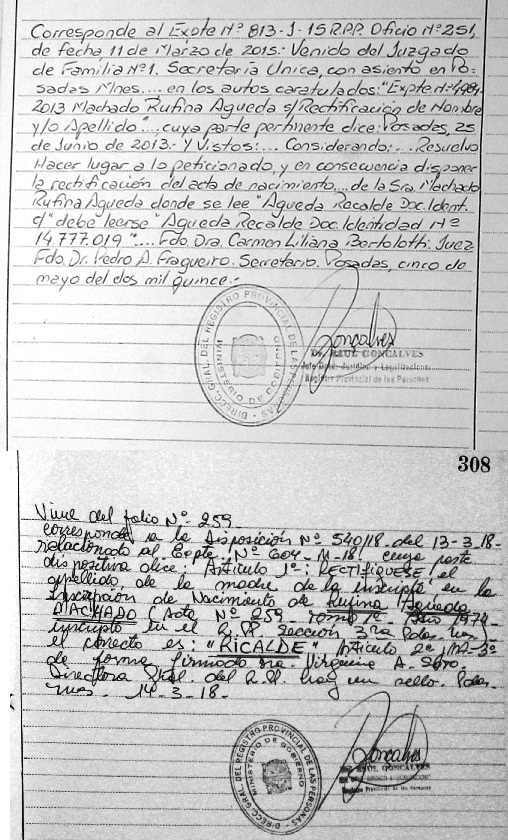 Corresponde al Expte Nº 813-J-15 R.P.P. Oficio Nº 251,
de fecha 11 de Marzo de 2015.- Venido del Juzgado
de Familia Nº1. Secretaría Unica, con asiento en Po-
sadas Mnes.... en los autos caratulados: "Expte Nº
2013 Machado Rufina Agueda s/Rectificación de Nombre
y/o Apellido"... cuya parte pertinente dice: Posadas, 25
de Junio de 2013.- Y Vistos:... Considerando:... Resuelvo
Hacer lugar a lo peticionado, y en consecuencia disponer
la rectificación del acta de nacimiento.... de la Sra. Machado
Rufina Agueda donde se lee "Agueda Recalde Doc. Ident.
d" debe leerse "Agueda Recalde Doc. Identidad Nº
14.777.019"... Fdo Dra. Carmen Liliana Bertolotti. Juez
Fdo. Dr. Pedro A. Fragueiro. Secretario. Posadas, cinco de
mayo del dos mil quince.-
DIRECC. GRAL. DEL REGISTRO PROVINCIAL DE LAS PERSONAS
MINISTERIO DE GOBIERNO
Goncalves
Dr. RAUL GONCALVES
Jefe Dpto. Jurídico y Legalizaciones
Registro Provincial de las Personas
308
Viene del folio Nº 259
corresponde a la Disposición Nº 540/18 del 13-3-18-
relacionado al Expte. Nº 604-M-18! cuya parte
dispositiva dice: Artículo 1º: RECTIFIQUESE! el
apellido de la madre de la inscripta en la
Inscripción de Nacimiento de Rufina Agueda
MACHADO (Acta Nº 259- Tomo 1º- Año 1974
inscripto en el R.P. Sección 3ra Posadas Mnes)
el correcto es: "RICALDE" Artículo 2º
de forma firmado Dra Virginia A.
Directora Gral. del R.P. hay un sello. Posa-
das. 14-3-18.-
DIRECC. GRAL. DEL REGISTRO PROVINCIAL DE LAS PERSONAS
MINISTERIO DE GOBIERNO
Goncalves
Dr. RAUL GONCALVES
Registro Provincial de las Personas